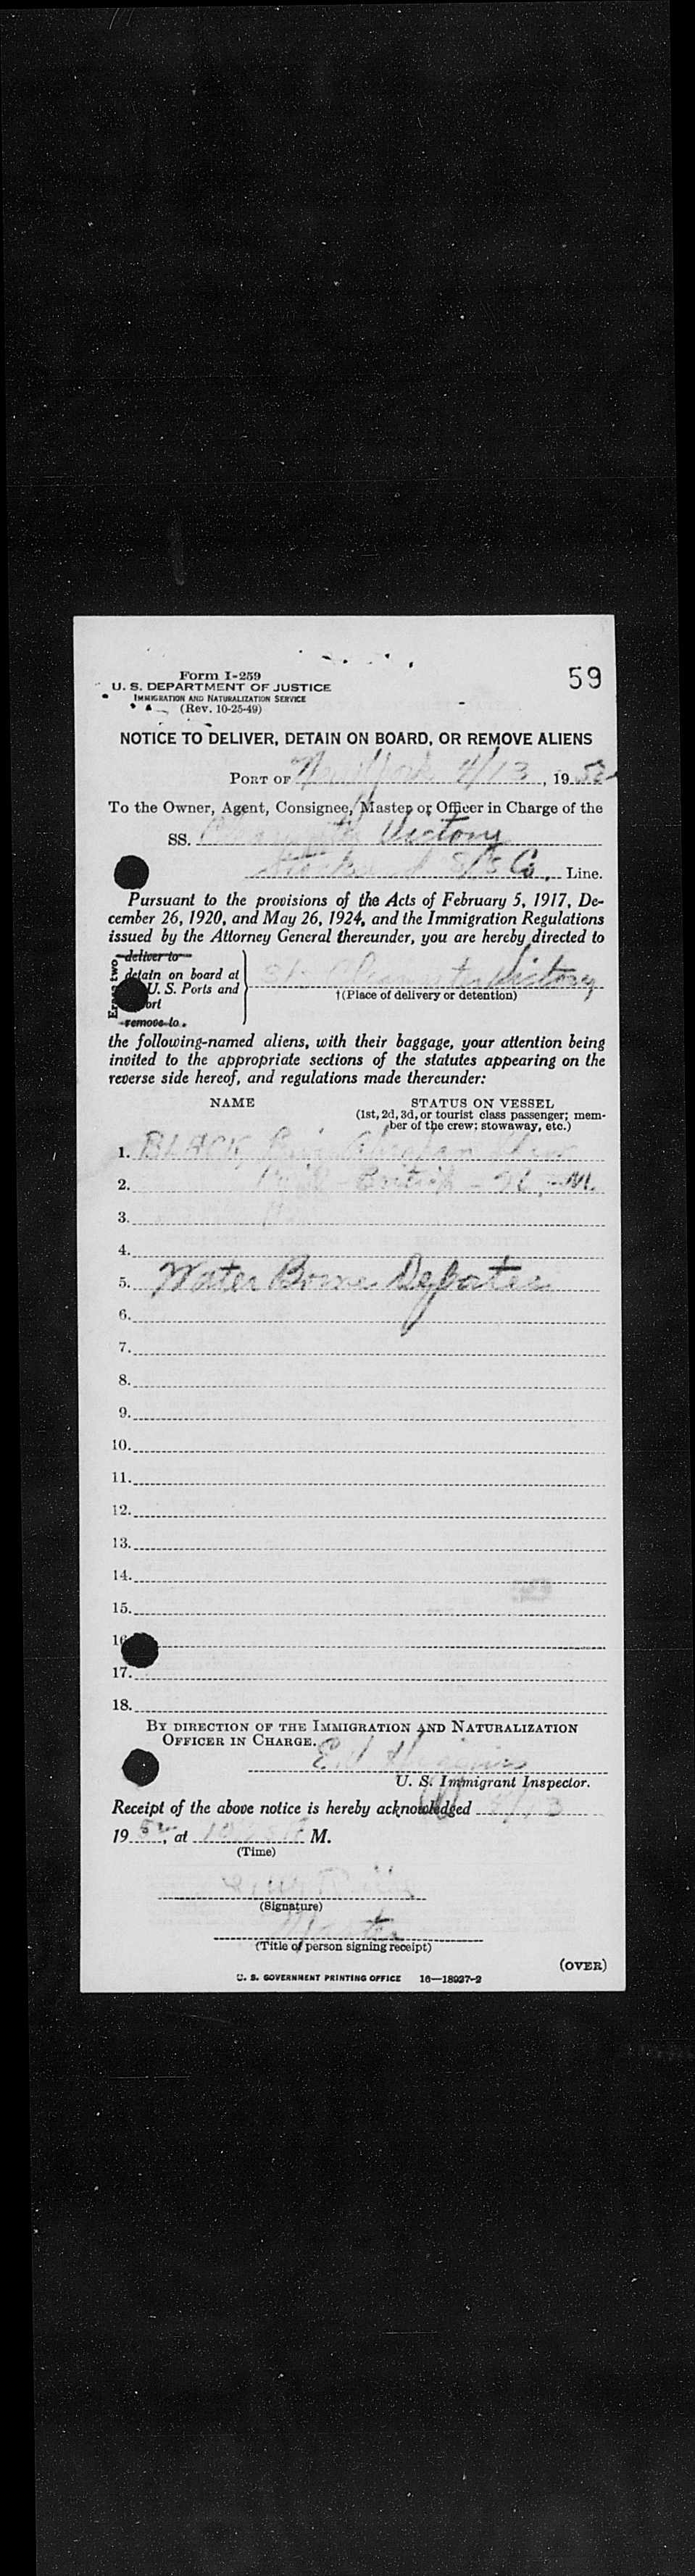 Form I-259
59
U. S. DEPARTMENT OF JUSTICE
IMMIGRATION AND NATURALIZATION SERVICE
(Rev. 10-25-49)
NOTICE TO DELIVER, DETAIN ON BOARD, OR REMOVE ALIENS
PORT OF New York 4/13, 1952
To the Owner, Agent, Consignee, Master or Officer in Charge of the
SS. Victory
S/S Co. Line.
Pursuant to the provisions of the Acts of February 5, 1917, De-
cember 26, 1920, and May 26, 1924, and the Immigration Regulations
issued by the Attorney General thereunder, you are hereby directed to
Erase two
deliver to
detain on board at
U. S. Ports and
remove to
Victory
†(Place of delivery or detention)
the following-named aliens, with their baggage, your attention being
invited to the appropriate sections of the statutes appearing on the
reverse side hereof, and regulations made thereunder:
NAME STATUS ON VESSEL
(1st, 2d, 3d, or tourist class passenger; mem-
ber of the crew; stowaway, etc.)
1. BLACK,
2. British - M.
3.
4.
5. Water Borne
6.
7.
8.
9.
10.
11.
12.
13.
14.
15.
16
17.
18.
BY DIRECTION OF THE IMMIGRATION AND NATURALIZATION
OFFICER IN CHARGE.
U. S. Immigrant Inspector.
Receipt of the above notice is hereby acknowledged 4/13
1952, at M.
(Time)
(Signature)
Master
(Title of person signing receipt)
(OVER)
U. S. GOVERNMENT PRINTING OFFICE 16—18937-2